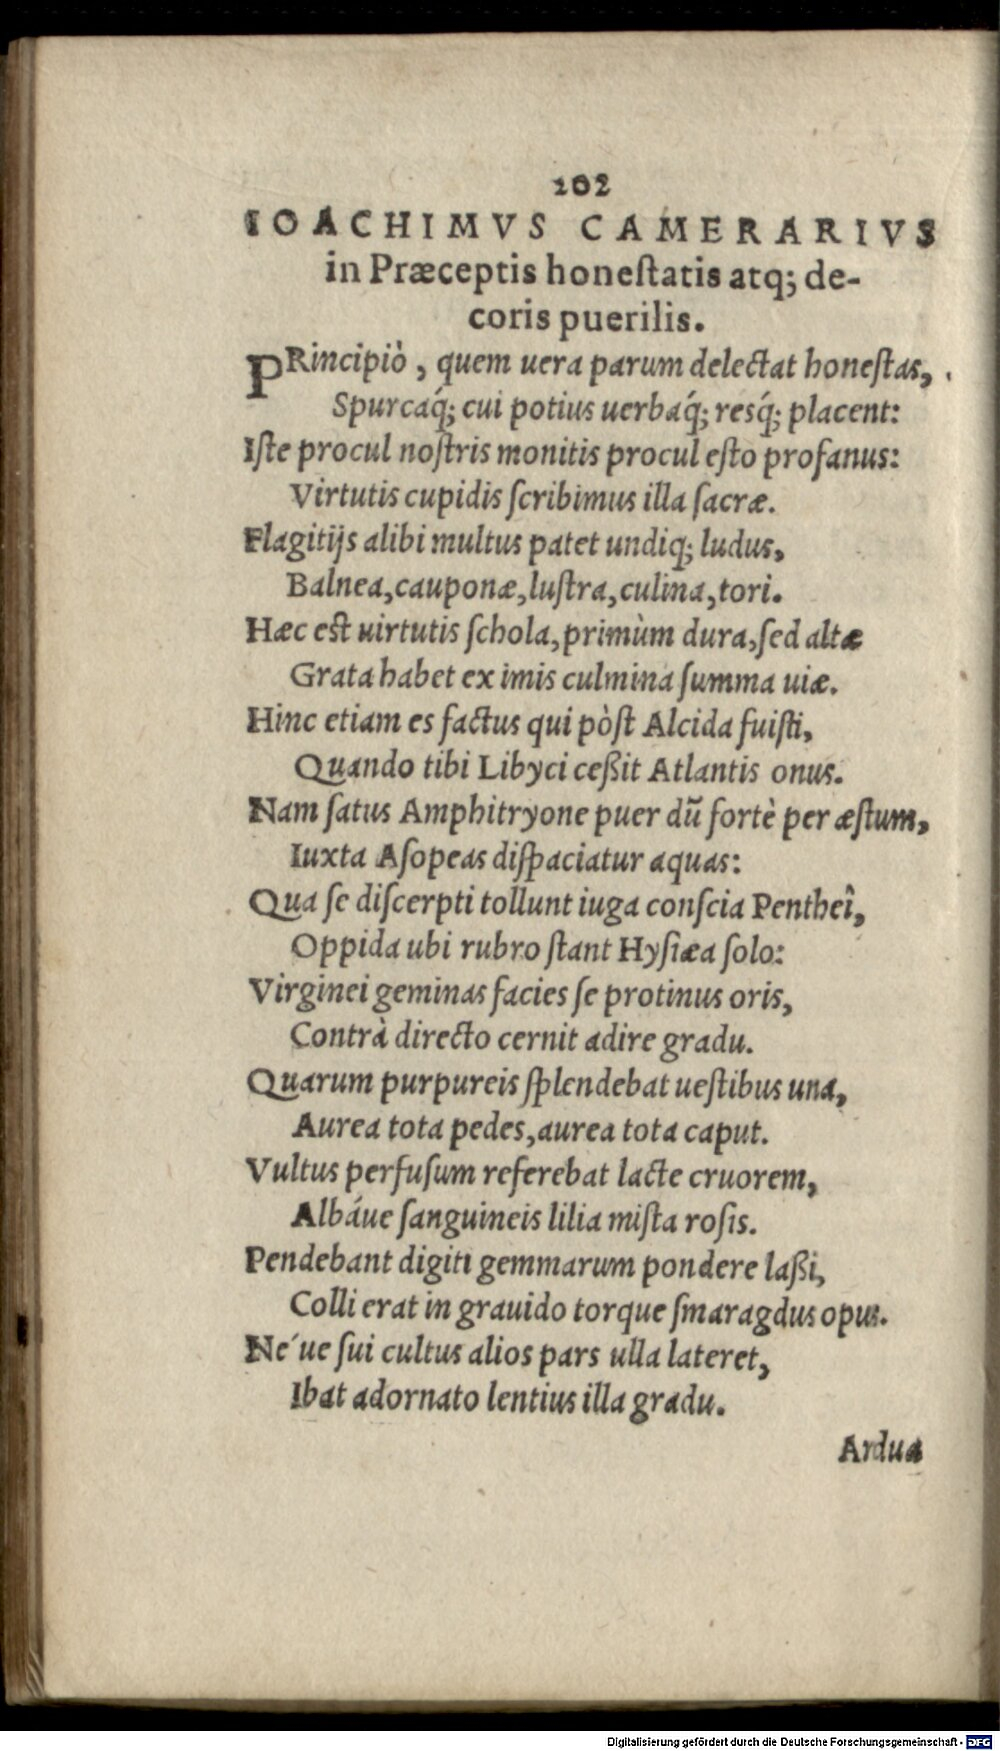 202
IOACHIMVS CAMERARIVS
in Præceptis honeſtatis atq; de-
coris puerilis.
PRincipiò, quem uera parum delectat honeſtas,
Spurcaq́; cui potius uerbaq́; resq́; placent:
Iſte procul noſtris monitis procul eſto profanus:
Virtutis cupidis ſcribimus illa ſacræ.
Flagitijs alibi multus patet undiq; ludus,
Balnea, cauponæ, luſtra, culina, tori.
Hæc eſt uirtutis ſchola, primùm dura, ſed altæ
Grata habet ex imis culmina ſumma uiæ.
Hinc etiam es factus qui pòſt Alcida fuiſti,
Quando tibi Libyci ceßit Atlantis onus.
Nam ſatus Amphitryone puer dū fortè per æſtum,
Iuxta Aſopeas diſpaciatur aquas:
Qua ſe diſcerpti tollunt iuga conſcia Pentheî,
Oppida ubi rubro ſtant Hyſiæa ſolo:
Virginei geminas facies ſe protinus oris,
Contrà directo cernit adire gradu.
Quarum purpureis ſplendebat ueſtibus una,
Aurea tota pedes, aurea tota caput.
Vultus perfuſum referebat lacte cruorem,
Albáue ſanguineis lilia miſta roſis.
Pendebant digiti gemmarum pondere laßi,
Colli erat in grauido torque ſmaragdus opus.
Né ue ſui cultus alios pars ulla lateret,
Ibat adornato lentius illa gradu.
Ardua
Digitalisierung gefördert durch die Deutsche Forschungsgemeinschaft - DFG